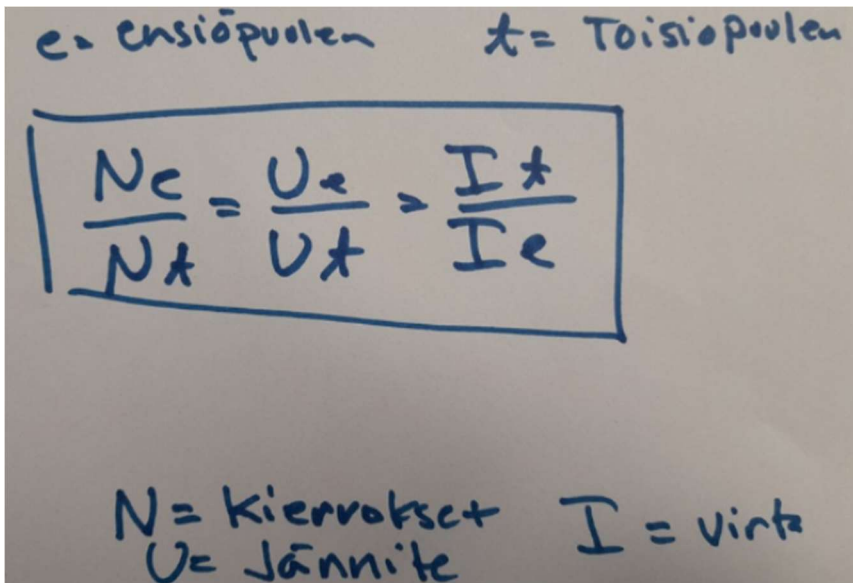 e= ensiöpuolen t= Toisiopuolen
Ne/Nt = Ue/Ut = It/Ie
N= Kierrokset I = virta
U= Jännite